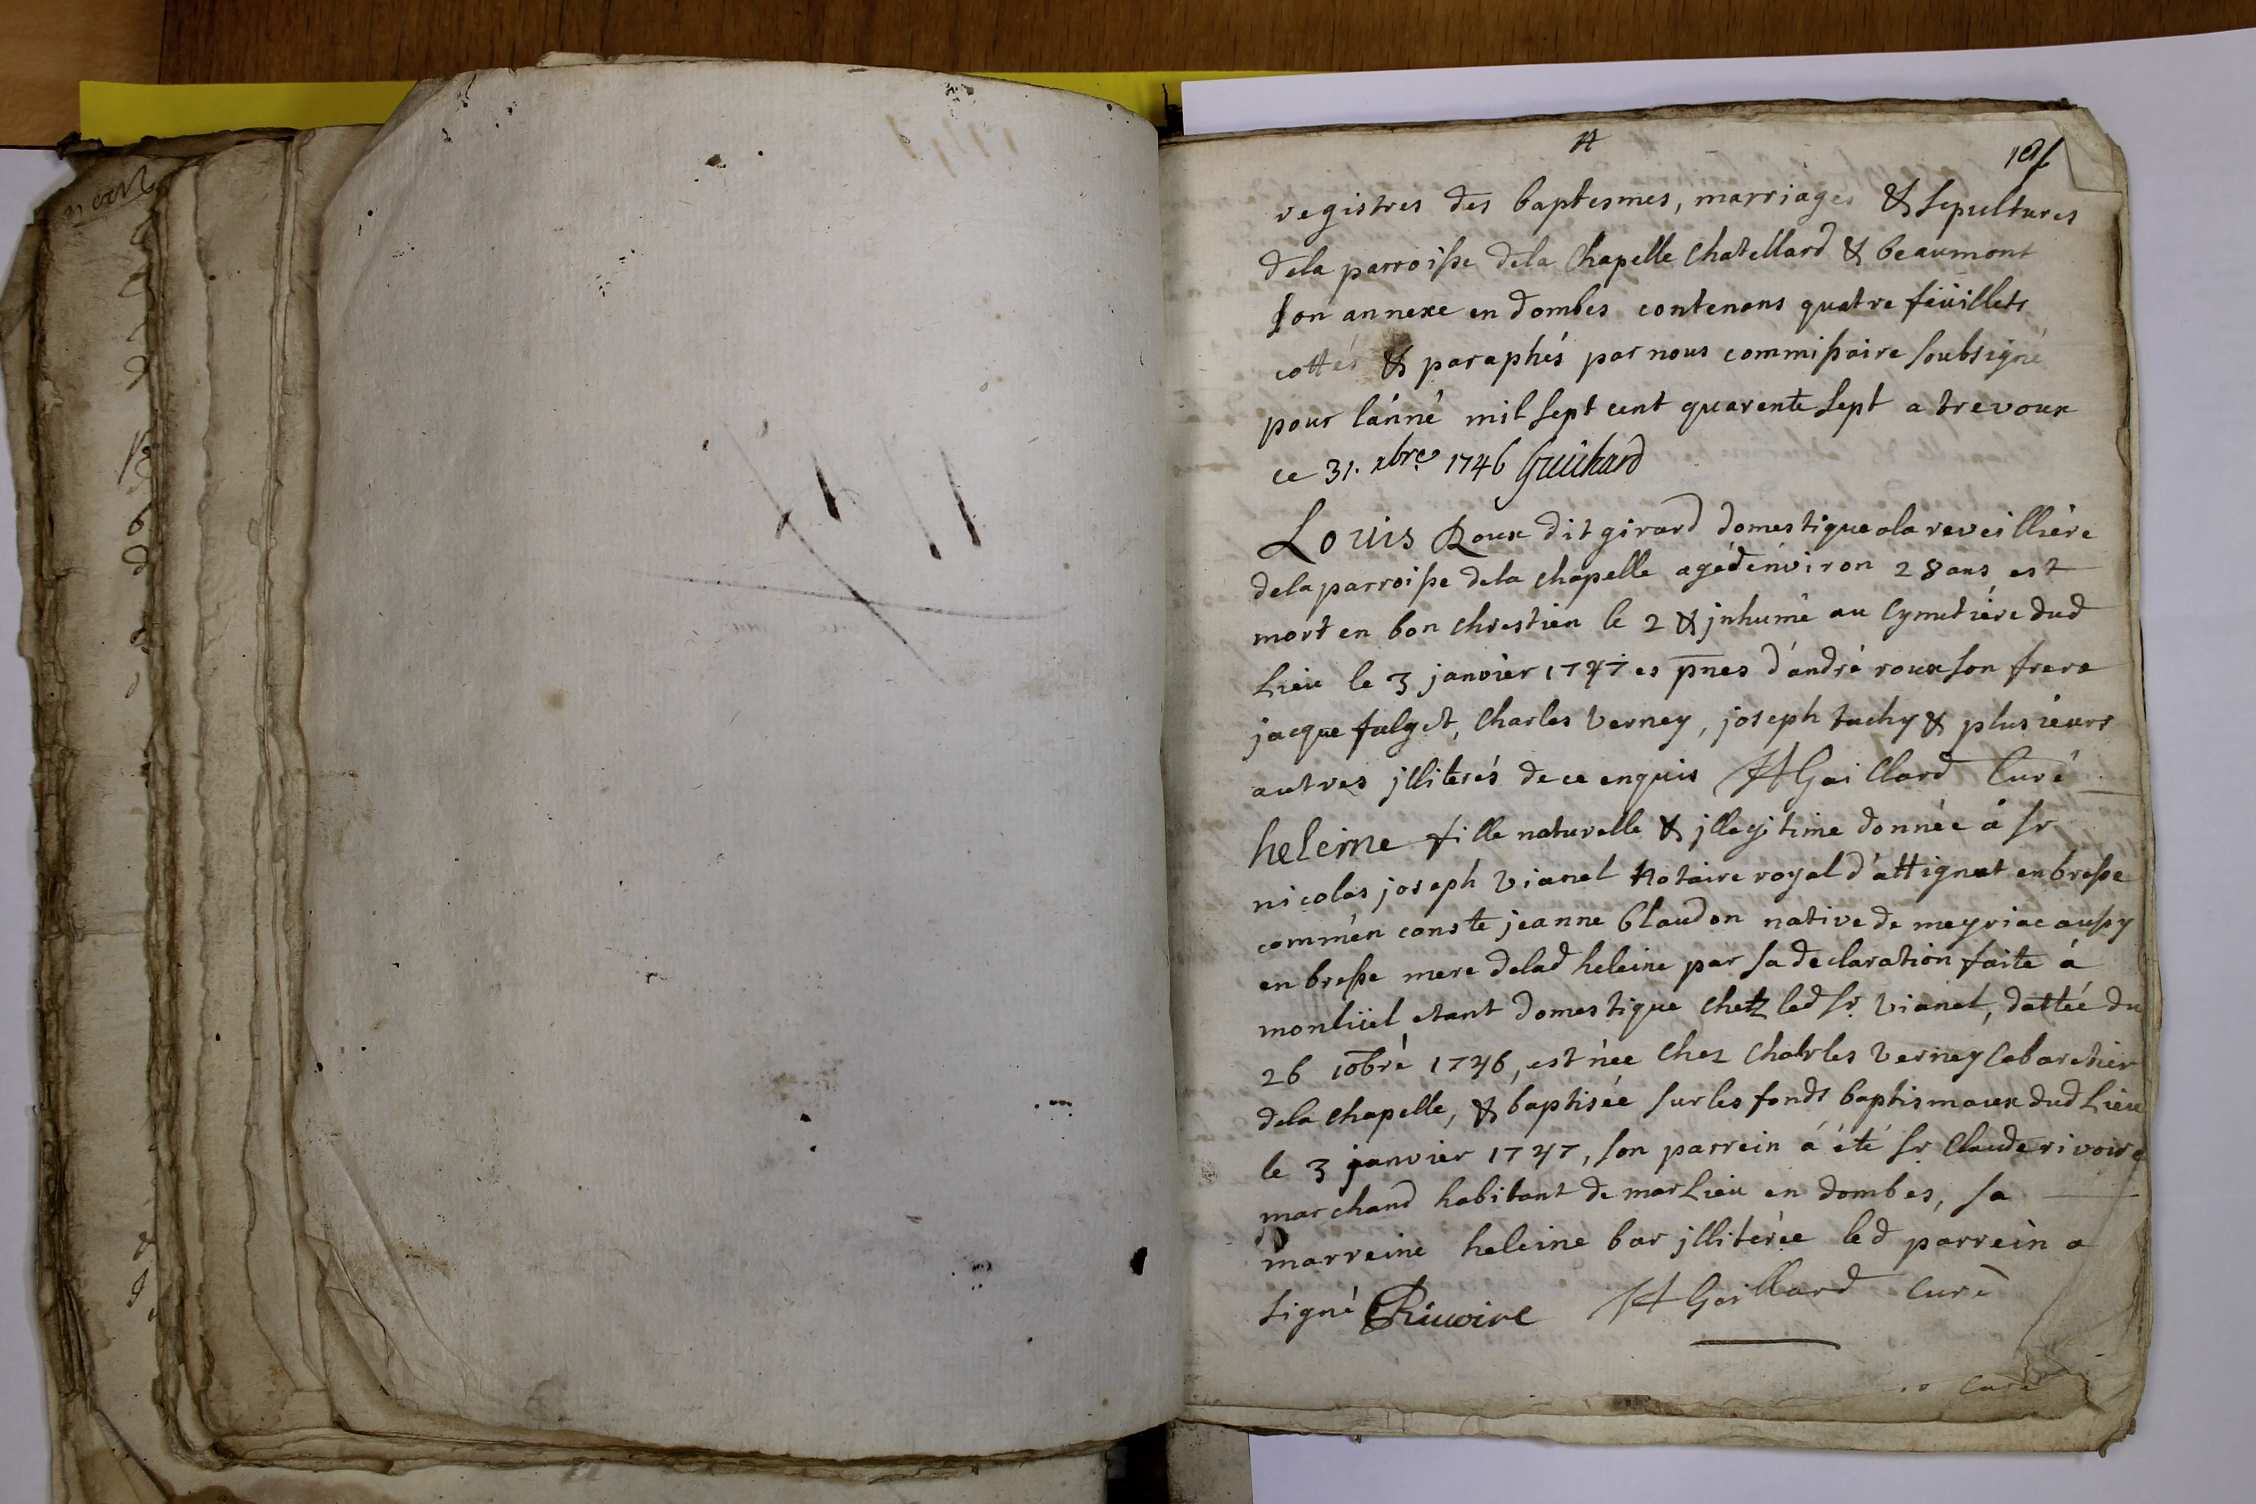 registres des baptesmes, marriages & sepultures
dela parroisse dela Chapelle Chatellard & beaumont
son annexe en dombes contenans quatre feüillets
cottés & paraphés par nous commissaire soubsigné
pour lánné mil sept cent quarente sept a trevoux
ce 31. xbre 1746 Guichard
Louis Roux dit girard domestique ala reveillière
dela parroisse dela chapelle agé dénviron 28 ans est
mort en bon chrestien le 2 & jnhumé au Cymetière dud
Lieu le 3 janvier 1747 es pnes d'andré roux son frere
jacque fulget, Charles Verney, joseph tuchy & plusieurs
autres jlliterés de ce enquis Gaillard Curé
heleine fille naturelle & jllegitime donnée á sr
nicolas joseph Vianel Notaire royal d'attignat en bresse
comm'en conste jeanne blaudon native de meyriac aussy
en bresse mere delad heleine par sa declaration faite á
monlüel etant domestique chetz led sr. Vianel, dattée du
26 10bre 1746, est née Chez Charles Verney Cabaretier
dela chapelle, & baptisée sur les fonds baptismaux dud Lieu
le 3 janvier 1747, son parrein á été sr Claude rivoire
marchand habitant de marlieu en dombes, sa
marreine heleine bar jlliterée led parrein a
signé Riuoire Gaillard Curé
Curé